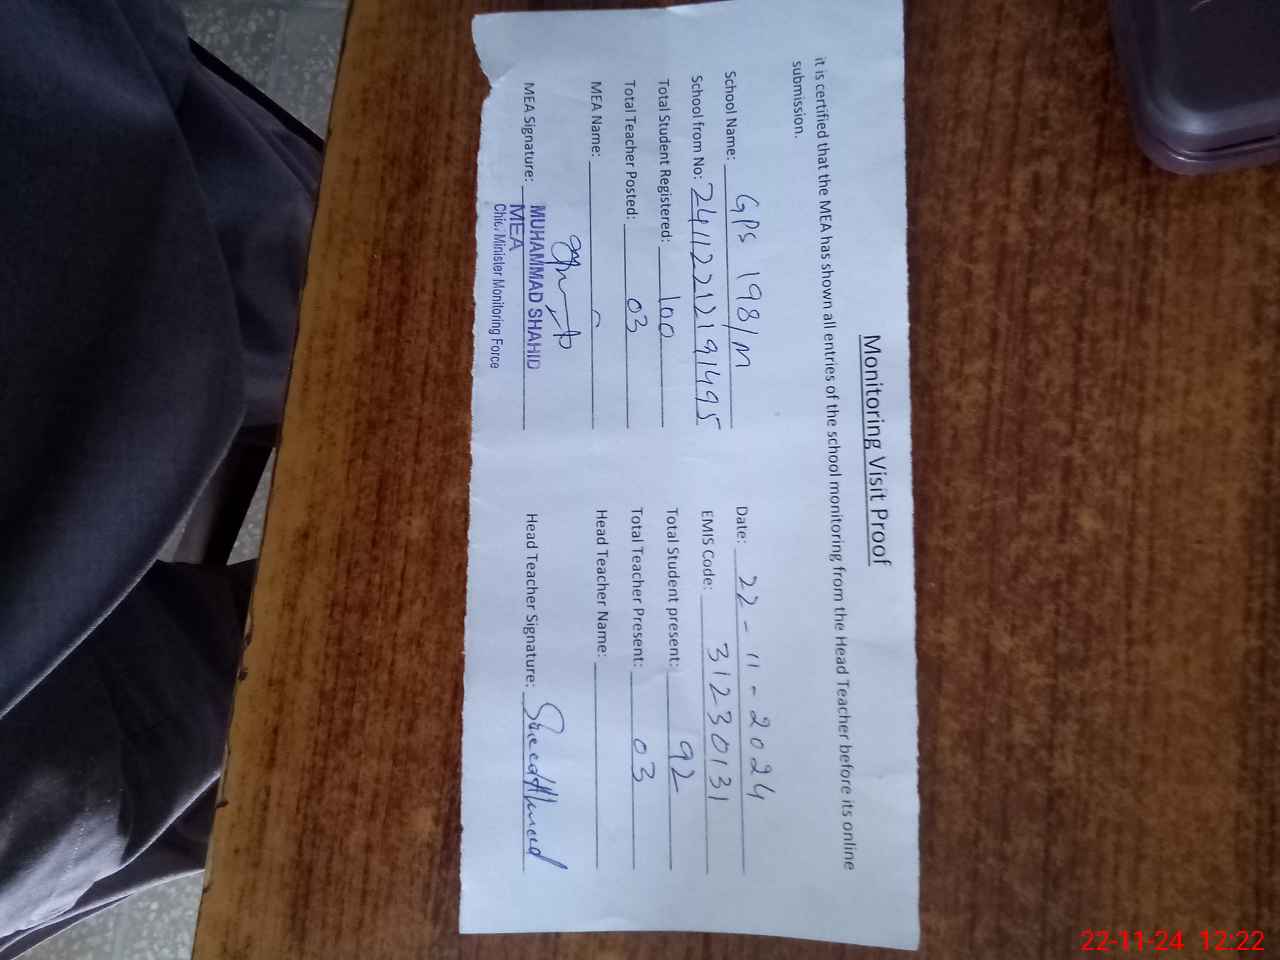 Monitoring Visit Proof
it is certified that the MEA has shown all entries of the school monitoring from the Head Teacher before its online
submission.
School Name: GPS 198/M Date: 22-11-2024
School from No: 24112212191495 EMIS Code: 31230131
Total Student Registered: 100 Total Student present: 92
Total Teacher Posted: 03 Total Teacher Present: 03
MEA Name: Head Teacher Name:
MEA Signature: MUHAMMAD SHAHID Head Teacher Signature: Saeed Ahmed
MEA
Chief Minister Monitoring Force
22-11-24 12:22